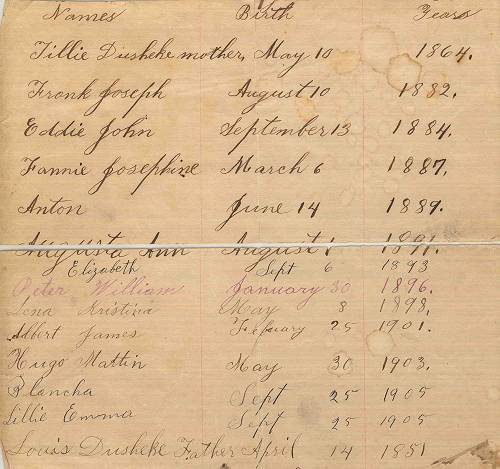 Names Birth Years
Tillie Dusheke mother, May 10 1864.
Fronk Joseph August 10 1882.
Eddie John September 13 1884.
Fannie Josephine March 6 1887.
Anton June 14 1889.
Augusta Ann August 1 1891.
Elizabeth Sept 6 1893
Peter William January 30 1896.
Lena Kristina May 8 1898,
Albert James Febuary 25 1901.
Hugo Martin May 30 1903.
Blancha Sept 25 1905
Lillie Emma Sept 25 1905
Louis Dusheke Father April 14 1851